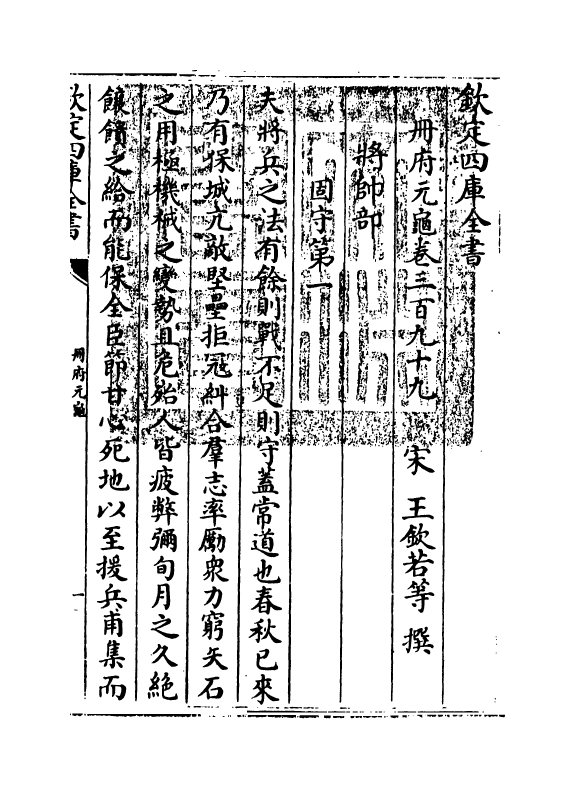 欽定四庫全書
册府元龜卷三百九十九 宋 王欽若等 撰
將帥部
固守第一
夫將兵之法有餘則戰不足則守蓋常道也春秋已來
乃有保城亢敵堅壘拒冦糾合羣志率勵衆力窮矢石
之用極機械之變勢且危殆人皆疲弊彌旬月之久絶
饟餉之給而能保全臣節甘心死地以至援兵甫集而
欽定四庫全書
册府元龜
一